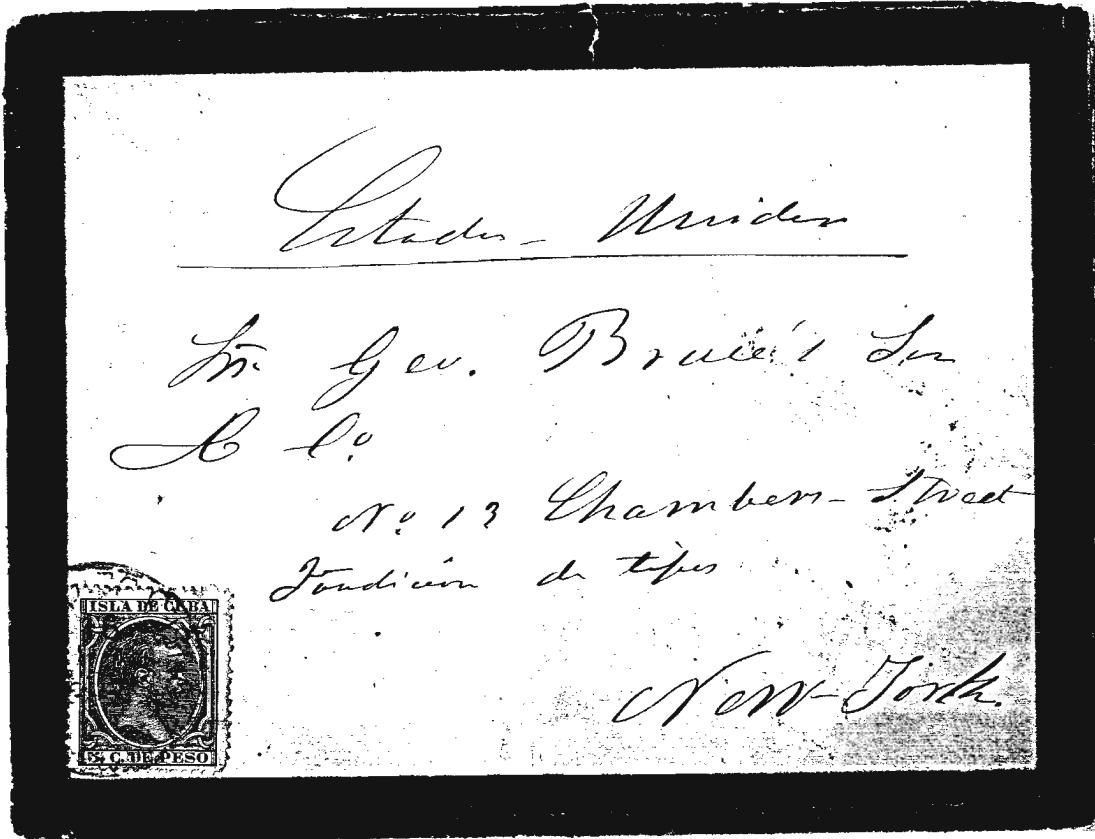 Estados-Unidos
Sr. Geo. Bruce's Son
& Co
No 13 Chambers-Street
Fundicion de tipos
New-York.
ISLA DE CUBA
5 C. DE PESO